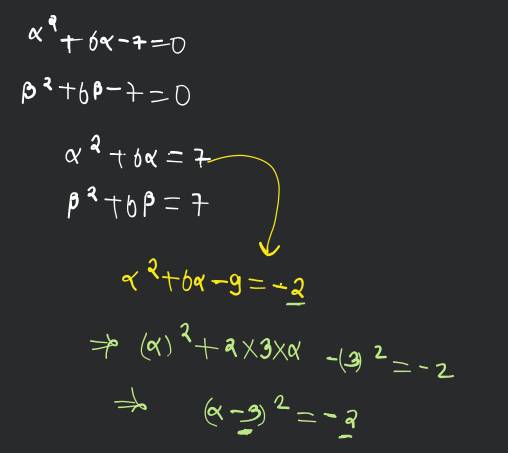 α² + 6α - 7 = 0
β² + 6β - 7 = 0
α² + 6α = 7
β² + 6β = 7
α² + 6α - 9 = -2
⇒ (α)² + 2×3×α - (3)² = -2
⇒ (α - 3)² = -2